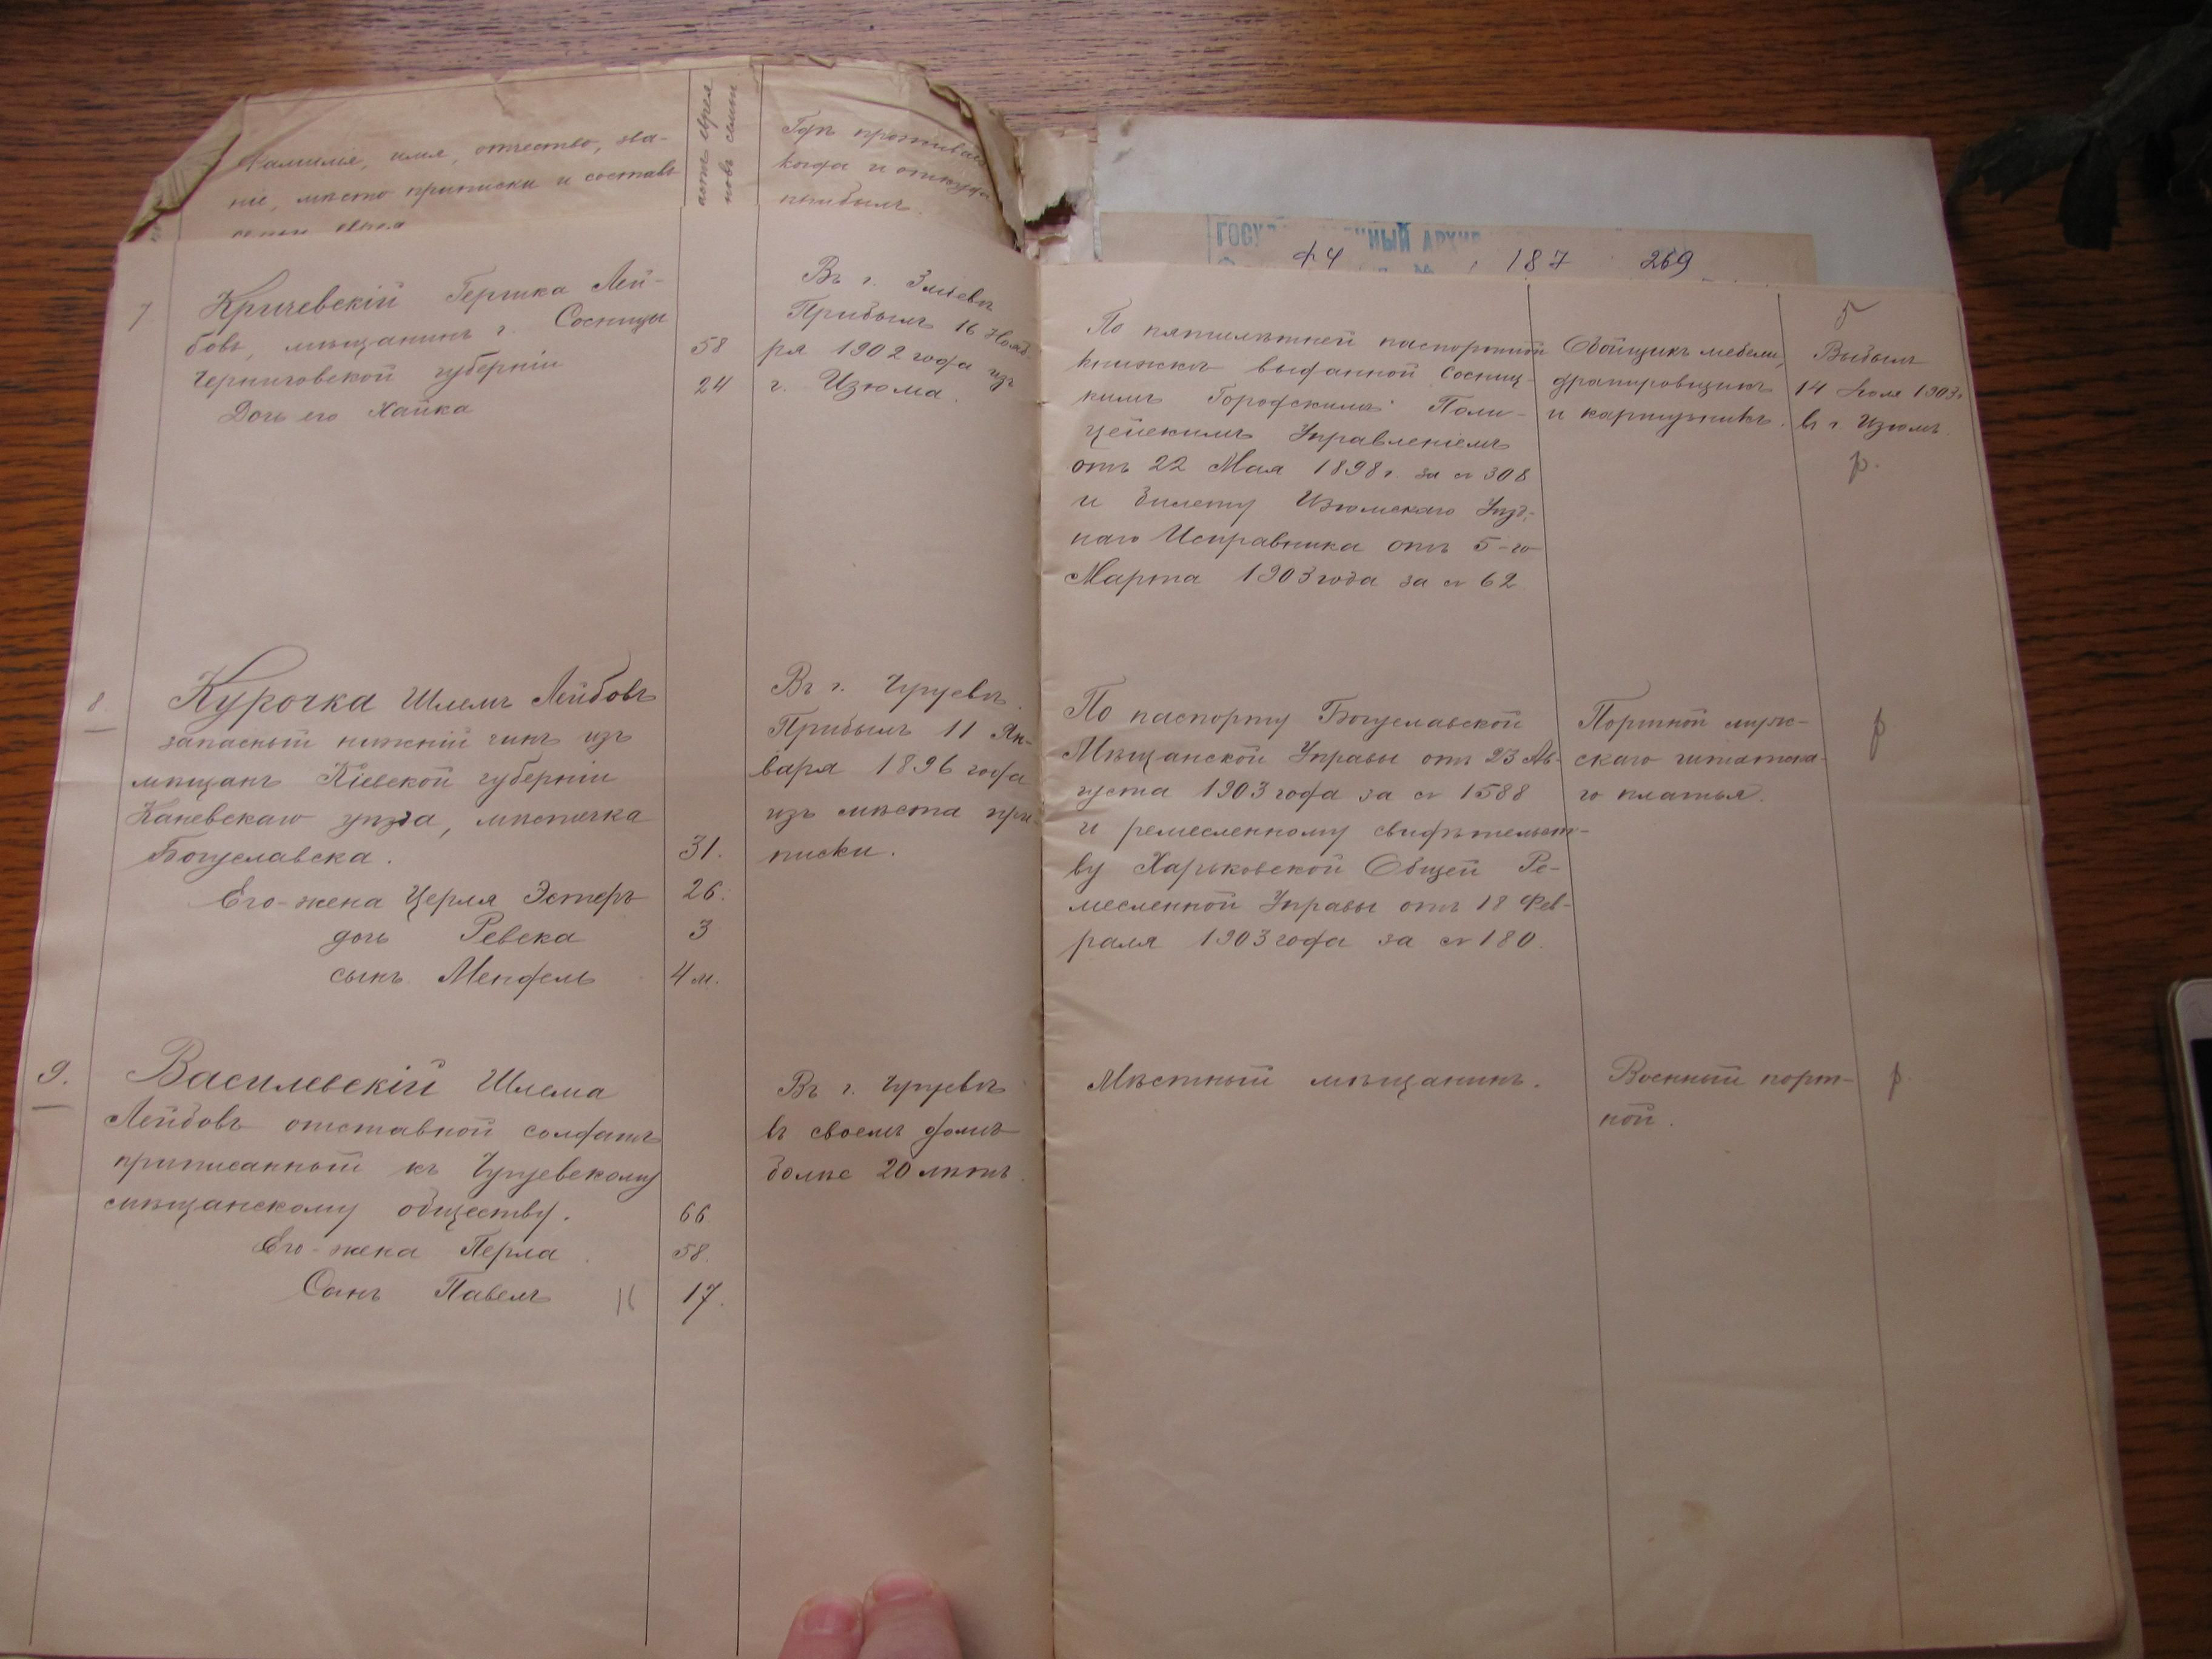 Фамилія, имя, отчество, зва-
ніе, мѣсто приписки и составъ
семьи еврея
лѣта еврея
новъ семьи
Гдѣ проживаетъ
когда и откуда
прибылъ.
ГОСУ НЫЙ АРХИВ
ф4 187 269
5
7
Кричевскій Гершка Лей-
бовъ, мѣщанинъ г. Сосницы
Черниговской губерніи
58
Дочь его Хайка
24
Въ г. Зміевѣ
Прибылъ 16 Нояб-
ря 1902 года изъ
г. Изюма.
По пятилѣтней паспортной
книжкѣ выданной Сосниц-
кимъ Городскимъ Поли-
цейскимъ Управленіемъ
отъ 22 Мая 1898 г. за № 308
и билету Изюмскаго Уѣзд-
наго Исправника отъ 5-го
Марта 1903 года за № 62
Обойщикъ мебели,
драпировщикъ
и картузникъ.
Выбылъ
14 Іюля 1903 г.
въ г. Изюмъ.
р.
8.
Курочка Шлемъ Лейбовъ
запасный нижній чинъ изъ
мѣщанъ Кіевской губерніи
Каневскаго уѣзда, мѣстечка
Богуславска.
31.
Его-жена Церля Эстеръ
26.
дочь Ревека
3
сынъ Мендель
4 м.
Въ г. Чугуевѣ.
Прибылъ 11 Ян-
варя 1896 года
изъ мѣста при-
писки.
По паспорту Богуславской
Мѣщанской Управы отъ 23 Ав-
густа 1903 года за № 1588
и ремесленному свидѣтельст-
ву Харьковской Общей Ре-
месленной Управы отъ 18 Фев-
раля 1903 года за № 180.
Портной муж-
скаго штатска-
го платья.
р
9.
Василевскій Шлема
Лейбовъ отставной солдатъ
приписанный къ Чугуевскому
мѣщанскому обществу.
66
Его-жена Перла
58.
Сынъ Павелъ
16
17.
Въ г. Чугуевѣ
въ своемъ домѣ
болѣе 20 лѣтъ.
Мѣстный мѣщанинъ.
Военный порт-
ной.
р.